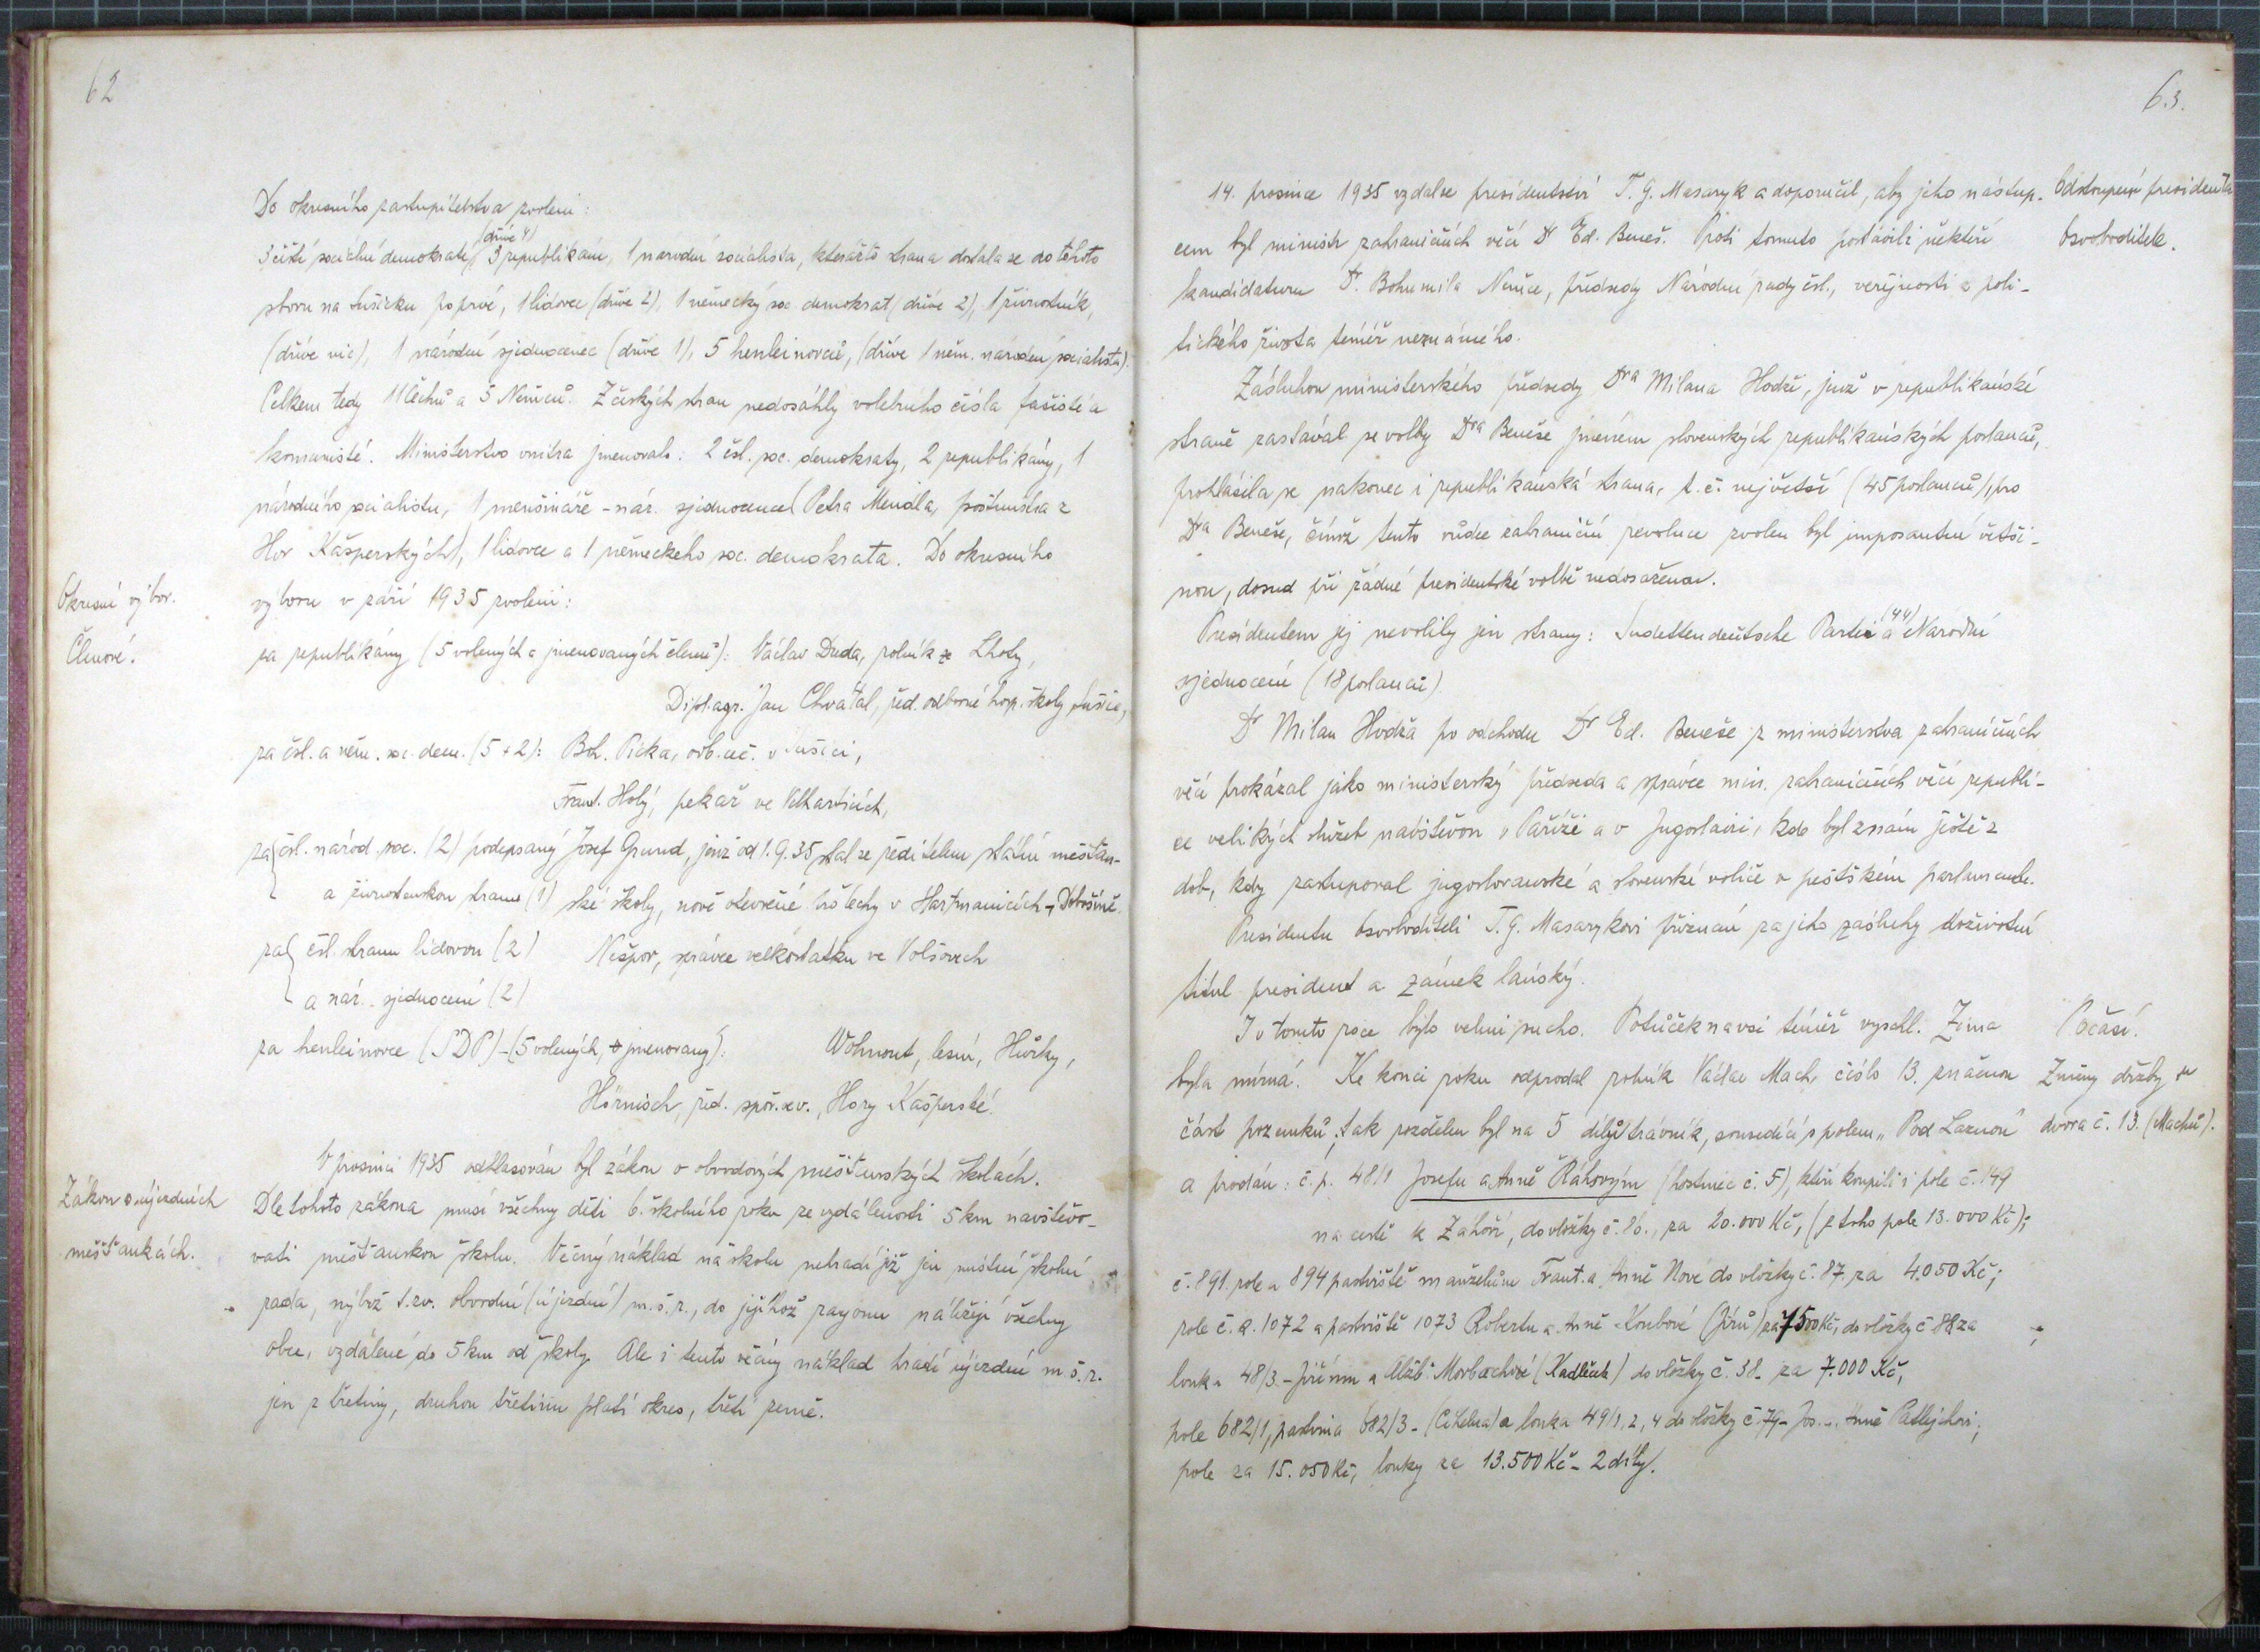 62
Do okresního zastupitelstva zvoleni:
3 čští sociální demokraté, (dříve 4) 3 republikáni, 1 národní socialista, kterážto strana dostala se do tohoto
sboru na Sušicku poprvé, 1 lidovec (dříve 2), 1 německý soc. demokrat (dříve 2), 1 živnostník,
(dříve nic), 1 národní sjednocenec (dříve 1), 5 henleinovců, (dříve 1 něm. národní socialista).
Celkem tedy 11 Čechů a 5 Němců. Z českých stran nedosáhly volebního čísla fašisté a
komunisté. Ministerstvo vnitra jmenovalo: 2 čsl. soc. demokraty, 2 republikány, 1
národního socialistu, 1 menšináře - nár. sjednocence (Petra Mendla, poštmistra z
Hor Kašperských), 1 lidovce a 1 německého soc. demokrata. Do okresního
Okresní výbor.
Členové.
výboru v září 1935 zvoleni:
za republikány (5 volených a jmenovaných členů): Václav Duda, rolník ze Lhoty,
Dipl. agr. Jan Chvátal, řed. odborné hosp. školy Sušice,
za čsl. a něm. soc. dem. (5+2): Boh. Picka, odb. uč. v Sušici,
Frant. Holý, pekař ve Velharticích,
za čsl. národ. soc. (2) podepsaný Josef Grund, jenž od 1. 9. 35 stal se ředitelem státní měšťan-
a živnostenskou stranu (1) ské školy, nově otevřené hoštecky v Hartmanicích - Dobršíně.
za čsl. stranu lidovou (2) Nešpor, správce velkostatku ve Volšovech
a nár. sjednocení (2)
za henleinovce (SDP) - (5 volených, jmenovaný): Wohnout, lesní, Hůrky,
Hörnisch, řed. spoř. v. Hory Kašperské.
V prosinci 1935 odhlasován byl zákon o obvodových měšťanských školách.
Zákon o újezdních
měšťankách.
Dle tohoto zákona musí všechny děti 6. školního roku ze vzdálenosti 5 km navštěvo-
vati měšťanskou školu. Věcný náklad na školu nehradí již jen místní školní
rada, nýbrž t. zv. obvodní (újezdní) m. š. r., do jejíhož rayonu náležejí všechny
obce, vzdálené do 5 km od školy. Ale i tento věcný náklad hradí újezdní m. š. r.
jen z třetiny, druhou třetinu platí okres, třetí země.
63.
14. prosince 1935 vzdal se presidentství T. G. Masaryk a doporučil, aby jeho nástup-
Odstoupení presidenta
Osvoboditele.
cem byl ministr zahraničních věcí Dr Ed. Beneš. Proti tomuto postavili někteří
kandidaturu Dr. Bohumila Němce, předsedy Národní rady čsl., veřejnosti z poli-
tického života téměř neznámého.
Zásluhou ministerského předsedy Dra Milana Hodže, jenž v republikánské
straně zastával se volby Dra Beneše jménem slovenských republikánských poslanců,
prohlásila se nakonec i republikánská strana, t. č. největší (45 poslanců), pro
Dra Beneše, čímž tento vůdce zahraniční revoluce zvolen byl imposantní větši-
nou, dosud při žádné presidentské volbě nedosaženou.
Presidentem jej nevolily jen strany: Sudettendeutsche Partei (44) a Národní
sjednocení (18 poslanců).
Dr Milan Hodža po odchodu Dr Ed. Beneše z ministerstva zahraničních
věcí prokázal jako ministerský předseda a správce min. zahraničních věcí republi-
ce velikých služeb návštěvou v Paříži a v Jugoslavii, kde byl znám ještě z
dob, kdy zastupoval jugoslovanské a slovenské voliče v peštském parlamentě.
Presidentu Osvoboditeli T. G. Masarykovi přiznán za jeho zásluhy doživotní
titul president a zámek lánský.
I v tomto roce bylo velmi sucho. Potůček na vsi téměř vyschl. Zima
Počasí.
byla mírná. Ke konci roku odprodal rolník Václav Mach, číslo 13. značnou
Změny držby u
dvora č. 13. (Machů).
část pozemků; tak rozdělen byl na 5 dílů trávník, sousedící s polem "Pod Laznou"
a prodán: č. p. 48/1 Josefu a Anně Ráhovým (hostinec č. 5), kteří koupili i pole č. 149
na cestě k Záhoří, do vložky č. 26., za 20.000 Kč, (z toho pole 13.000 Kč);
č. 891. pole a 894 pastviště manželům Frant. a Anně Nové do vložky č. 87. za 4.050 Kč;
pole č. 1072 a pastviště 1073 Robertu a Anně Koubové (Jírů) za 7500 Kč, do vložky č 88 za
louka 48/3. - Jiřímu a Alžb. Morbachové (Kadlček) do vložky č. 38. za 7.000 Kč,
pole 682/1, pastvina 682/3 - (Cihelna) a louka 49/1, 2, 4 do vložky č. 79 - Jos. a Anně Patlejchovi;
pole za 15.050 Kč, louky za 13.500 Kč - 2 díly.